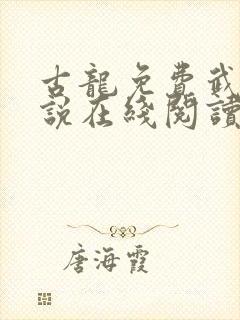 古龍免費武
說在綫閱讀
唐海霞